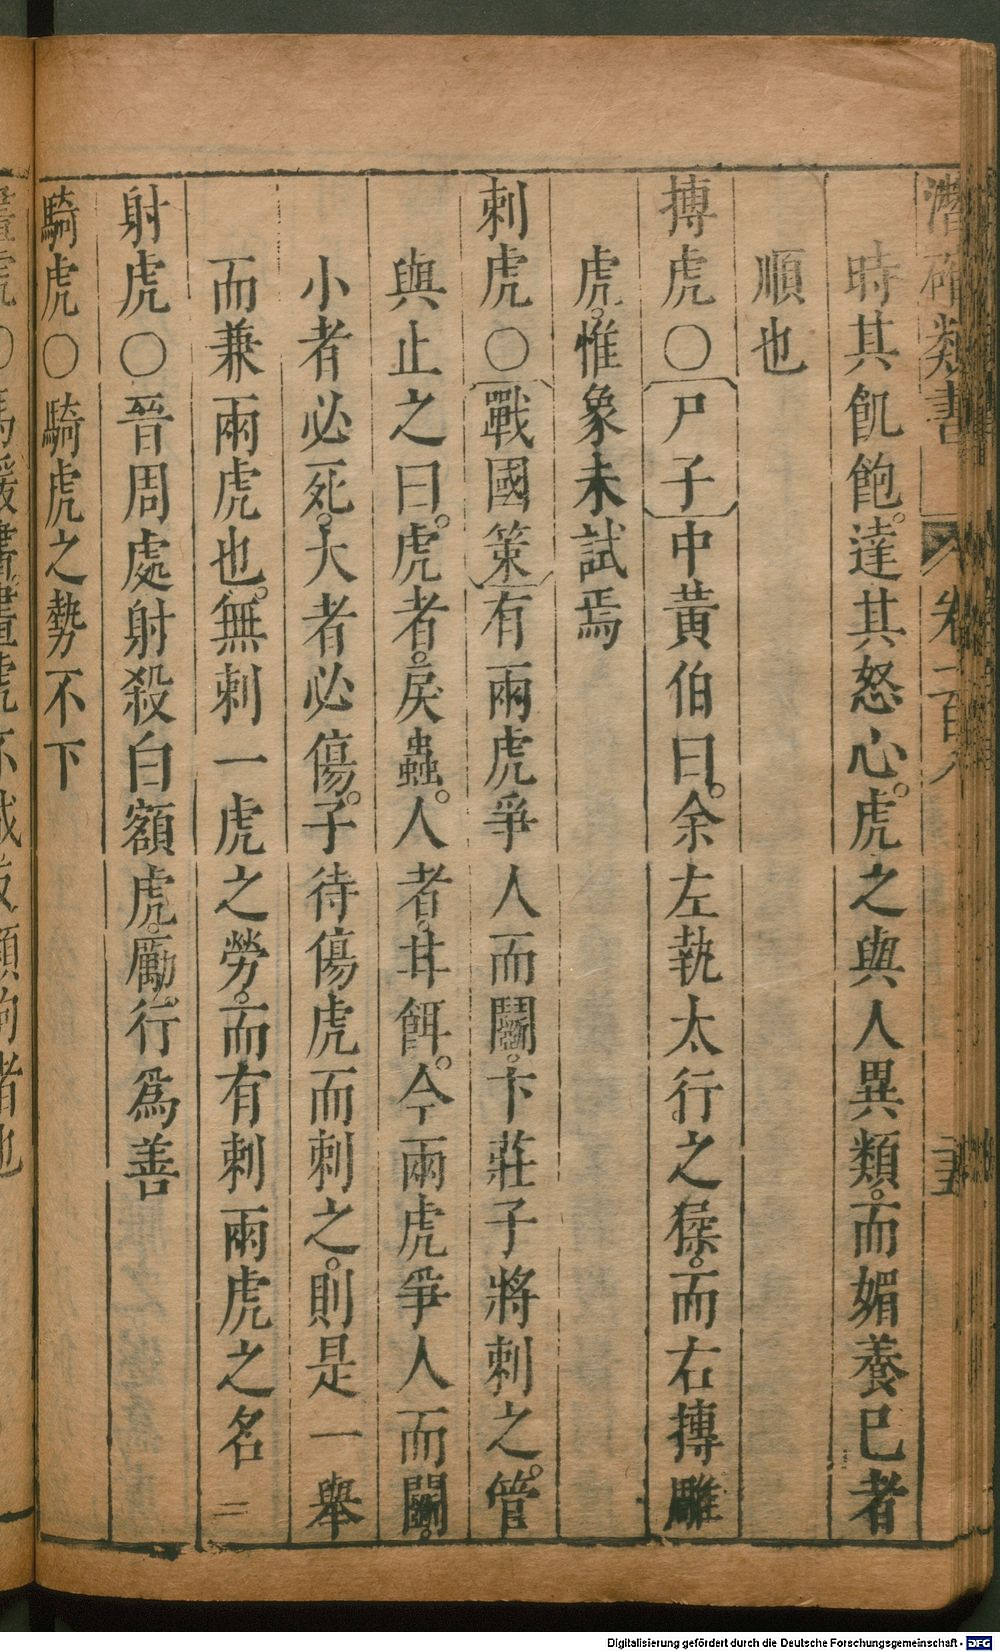 潛確類書 卷一百八 五
時其飢飽。達其怒心。虎之與人異類。而媚養巳者
順也
搏虎○〔尸子〕中黃伯曰。余左執太行之猱。而右搏雕
虎。惟象未試焉
刺虎○〔戰國策〕有兩虎爭人而鬭。卞莊子將刺之。管
與止之曰。虎者。戾蟲。人者。甘餌。今兩虎爭人而鬭。
小者必死。大者必傷。子待傷虎而刺之。則是一舉
而兼兩虎也。無刺一虎之勞。而有刺兩虎之名 二
射虎○晉周處射殺白額虎。厲行。爲善
騎虎○騎虎之勢不下
畫虎○馬援書。畫虎不成反類狗者也
Digitalisierung gefördert durch die Deutsche Forschungsgemeinschaft - DFG